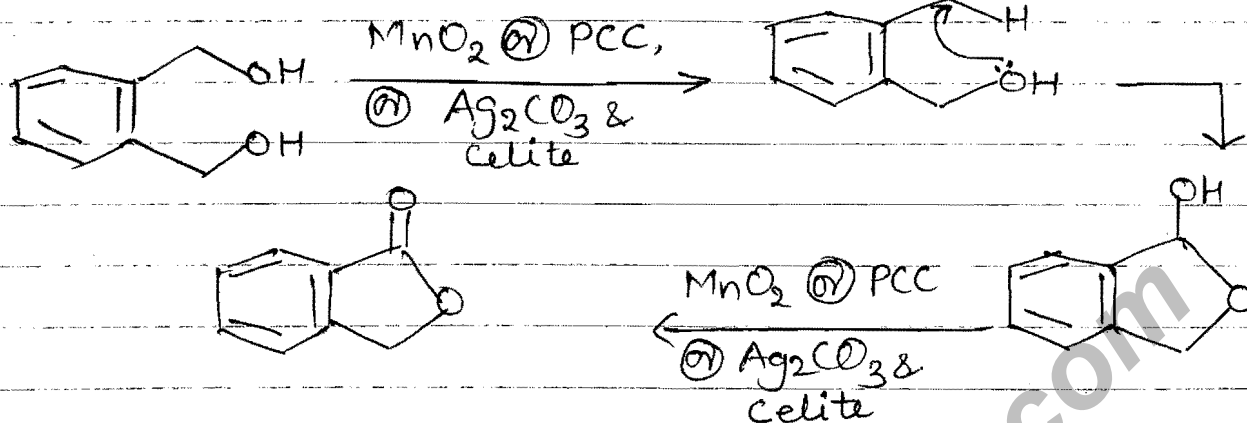 MnO₂ or PCC,
or Ag₂CO₃ &
Celite
OH
OH
H
ÖH
OH
O
O
O
MnO₂ or PCC
or Ag₂CO₃ &
Celite
com